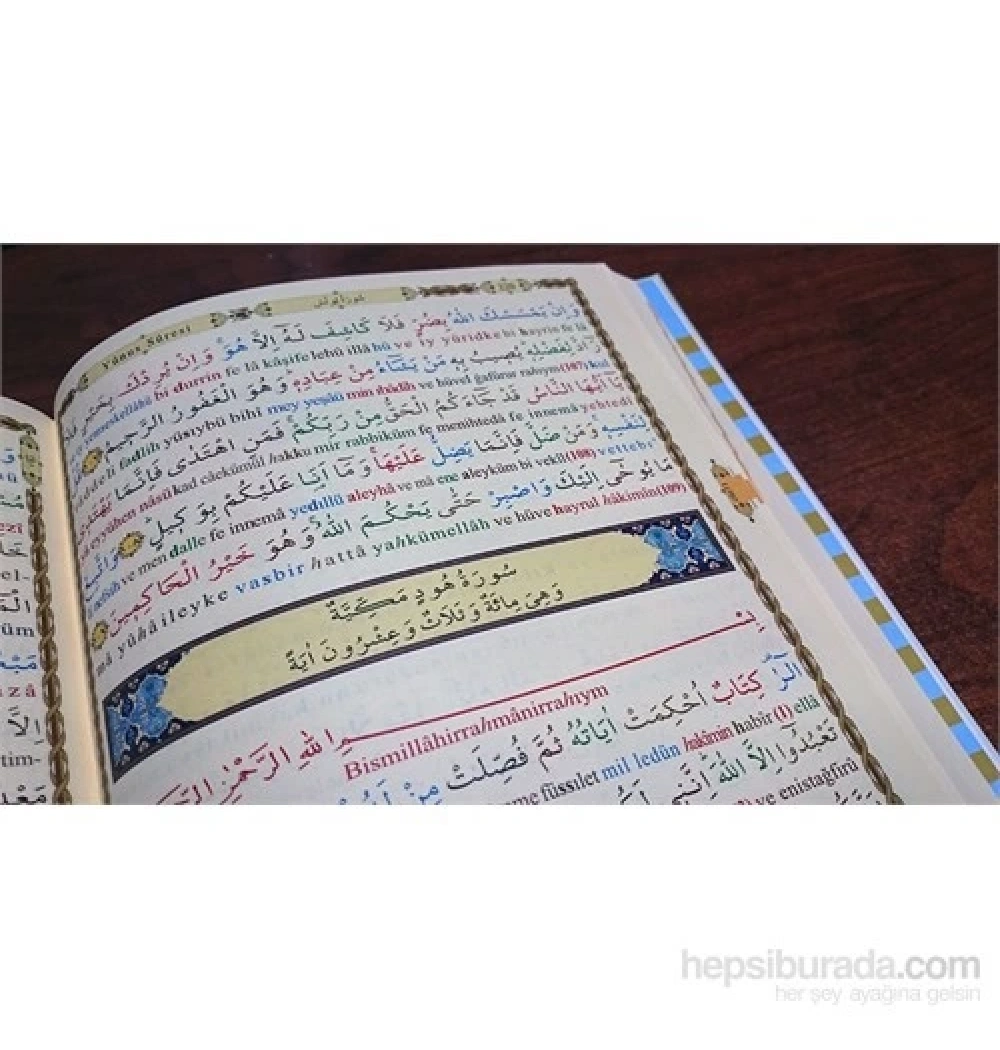 Yûnus Sûresi
سورة يونس
وَاِنْ يَمْسَسْكَ اللّٰهُ بِضُرٍّ فَلَا كَاشِفَ لَهُٓ اِلَّا هُوَ وَاِنْ يُرِدْكَ بِخَيْرٍ
yemseskellâhü bi durrin fe lâ kâşife lehû illâ hû ve iy yüridke bi hayrin fe lâ
لِفَضْلِهٖ يُصٖيبُ بِهٖ مَنْ يَشَٓاءُ مِنْ عِبَادِهٖ وَهُوَ الْغَفُورُ الرَّحٖيمُ
fadlih yüsıybü bihî mey yeşâü min ıbâdih ve hüvel ğafûrur rahıym (107)
يَٓا اَيُّهَا النَّاسُ قَدْ جَٓاءَكُمُ الْحَقُّ مِنْ رَبِّكُمْ فَمَنِ اهْتَدٰى فَاِنَّمَا يَهْتَدٖى
eyyühen nâsü kad câekümül hakku mir rabbiküm fe menihtedâ fe innemâ yehtedî
لِنَفْسِهٖ وَمَنْ ضَلَّ فَاِنَّمَا يَضِلُّ عَلَيْهَا وَمَٓا اَنَا عَلَيْكُمْ بِوَكٖيلٍ
nefsih ve men dalle fe innemâ yedıllü aleyhâ ve mâ ene aleyküm bi vekîl (108) vettebı'
مَا يُوحٰٓى اِلَيْكَ وَاصْبِرْ حَتّٰى يَحْكُمَ اللّٰهُ وَهُوَ خَيْرُ الْحَاكِمٖينَ
mâ yûhâ ileyke vasbir hattâ yahkümellâh ve hüve hayrul hâkimîn (109)
سُورَةُ هُودٍ مَكِّيَّةٌ
وَهِىَ مِائَةٌ وَثَلَاثٌ وَعِشْرُونَ اٰيَةً
بِسْمِ اللّٰهِ الرَّحْمٰنِ
Bismillâhirrahmânirrahıym
الٓرٰ كِتَابٌ اُحْكِمَتْ اٰيَاتُهُ ثُمَّ فُصِّلَتْ مِنْ
füssılet mil ledün hakîmin habîr (1) ellâ
تَعْبُدُٓوا اِلَّا اللّٰهَ اِنَّنٖى
ve enistağfirû
hepsiburada.com
her şey ayağına gelsin